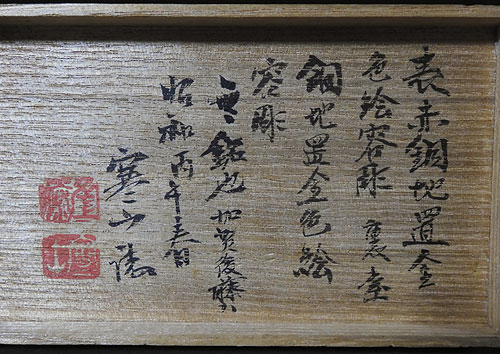 表赤銅地置金
色絵容彫 裏
銅地置金色絵
容彫
無銘也加賀後藤
昭和丙午春日
寒山誌